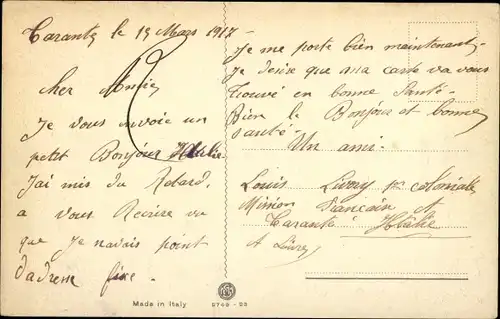 Tarante le 15 Mars 1917
cher Ami
Je vous envoie un
petit Bonjour
J'ai mis du Retard.
a vous Recrire vu
que Je navais point
d'adresse fixe.
Je me porte bien maintenant
Je desire que ma carte va vous
trouvé en bonne Santé
Bien le Bonjour et bonne
santé.
Un ami.
Louis coloniale
Mission Francaise A
Tarante Italie
A
Made in Italy
2709-23